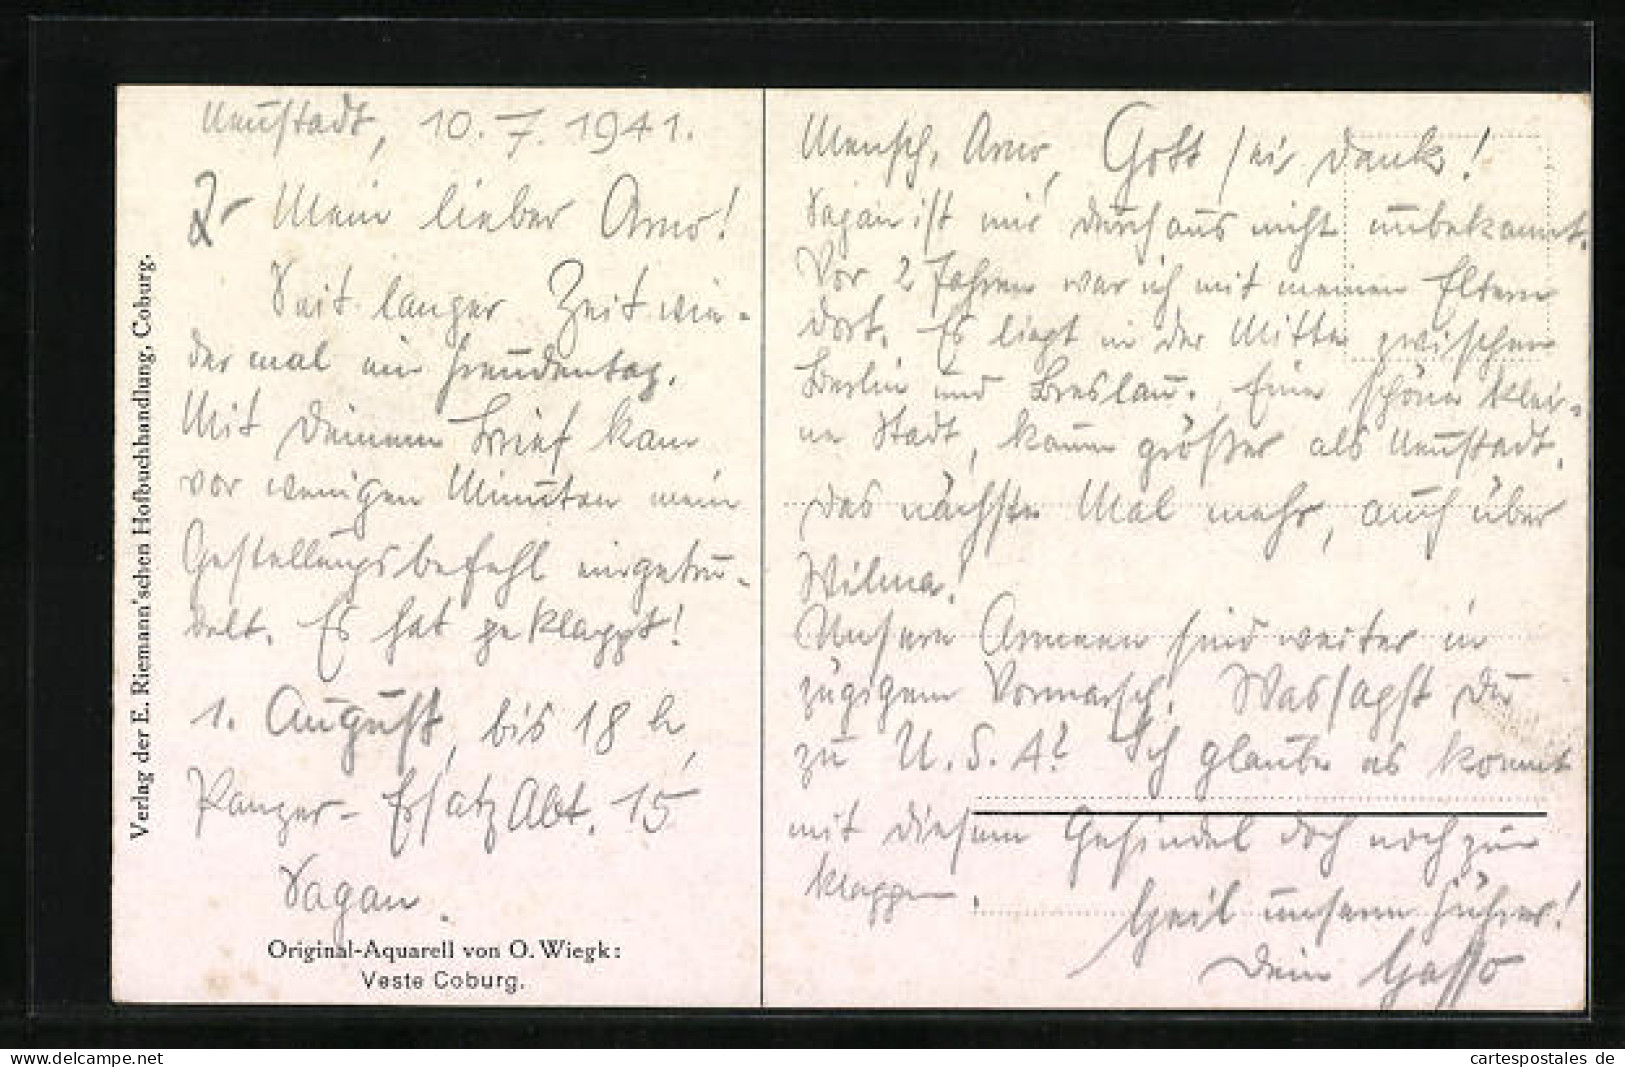 Neustadt, 10.7.1941.
Mein lieber Arno!
Seit langer Zeit wie-
der mal ein Freudentag.
Mit Deinem Brief kam
vor wenigen Minuten mein
Gestellungsbefehl eingetru-
delt. Es hat geklappt!
1. August, bis 18 h,
Panzer-Ersatz Abt. 15
Sagan.
Original-Aquarell von O. Wiegk:
Veste Coburg.
Verlag der E. Riemann'schen Hofbuchhandlung, Coburg.
Mensch, Arno, Gott sei Dank!
Sagan ist mir durchaus nicht unbekannt.
Vor 2 Jahren war ich mit meinen Eltern
dort. Es liegt in der Mitte zwischen
Berlin und Breslau. Eine schöne klei-
ne Stadt, kaum größer als Neustadt.
Das nächste Mal mehr, auch über
Wilma!
Unsere Armeen sind weiter in
zügigem Vormarsch. Was sagst Du
zu U.S.A? Ich glaube es kommt
mit diesem Gesindel doch noch zum
klappen.
Heil unserm Führer!
Dein Hasso
cartespostales.de
www.delcampe.net